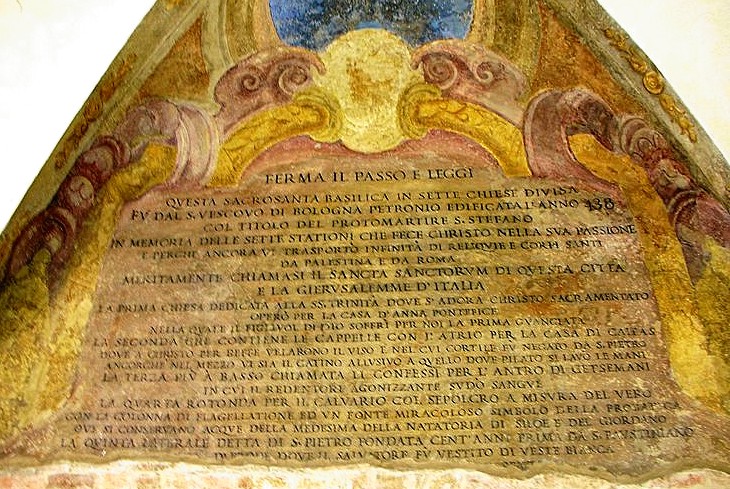 FERMA IL PASSO E LEGGI
QVESTA SACROSANTA BASILICA IN SETTE CHIESE DIVISA
FV DAL S. VESCOVO DI BOLOGNA PETRONIO EDIFICATA L'ANNO 438
COL TITOLO DEL PROTOMARTIRE S. STEFANO
IN MEMORIA DELLE SETTE STATIONI CHE FECE CHRISTO NELLA SVA PASSIONE
E PERCHE ANCORA VI TRASPORTÒ INFINITÀ DI RELIQVIE E CORPI SANTI
DA PALESTINA E DA ROMA
MERITAMENTE CHIAMASI IL SANCTA SANCTORVM DI QVESTA CITTÀ
E LA GIERVSALEMME D'ITALIA
LA PRIMA CHIESA DEDICATA ALLA SS. TRINITÀ DOVE S'ADORA CHRISTO SACRAMENTATO
OPERÒ PER LA CASA D'ANNA PONTEFICE
NELLA QVALE IL FIGLIVOL DI DIO SOFFRÌ PER NOI LA PRIMA GVANCIATA
LA SECONDA CHE CONTIENE LE CAPPELLE CON L'ATRIO PER LA CASA DI CAIFAS
DOVE A CHRISTO PER BEFFE VELARONO IL VISO E NEL CVI CORTILE FV NEGATO DA S. PIETRO
ANCORCHE NEL MEZZO VI SIA IL CATINO ALLVSIVO A QVELLO DOVE PILATO SI LAVÒ LE MANI
LA TERZA PIÙ À BASSO CHIAMATA LE CONFESSI PER L'ANTRO DI GETSEMANI
IN CVI IL REDENTORE AGONIZZANTE SVDÒ SANGVE
LA QVARTA ROTONDA PER IL CALVARIO COL SEPOLCRO A MISVRA DEL VERO
CON LA COLONNA DI FLAGELLATIONE ED VN FONTE MIRACOLOSO SIMBOLO DELLA PROBATICA
OVE SI CONSERVANO ACQVE DELLA MEDESIMA DELLA NATATORIA DI SILOE E DEL GIORDANO
LA QVINTA LATERALE DETTA DI S. PIETRO FONDATA CENT'ANNI PRIMA DA S. FAVSTINIANO
DOVE IL SALVATORE FV VESTITO DI VESTE BIANCA